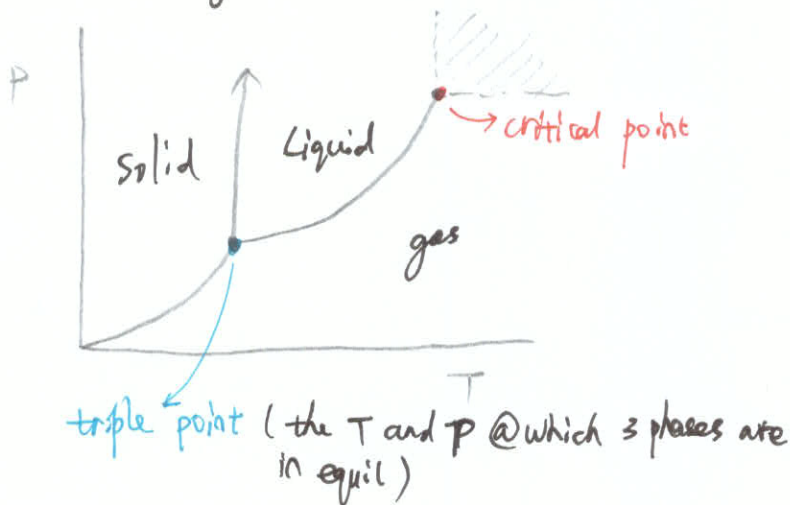 P
Solid
Liquid
critical point
gas
T
triple point (the T and P @ which 3 phases are
in equil)